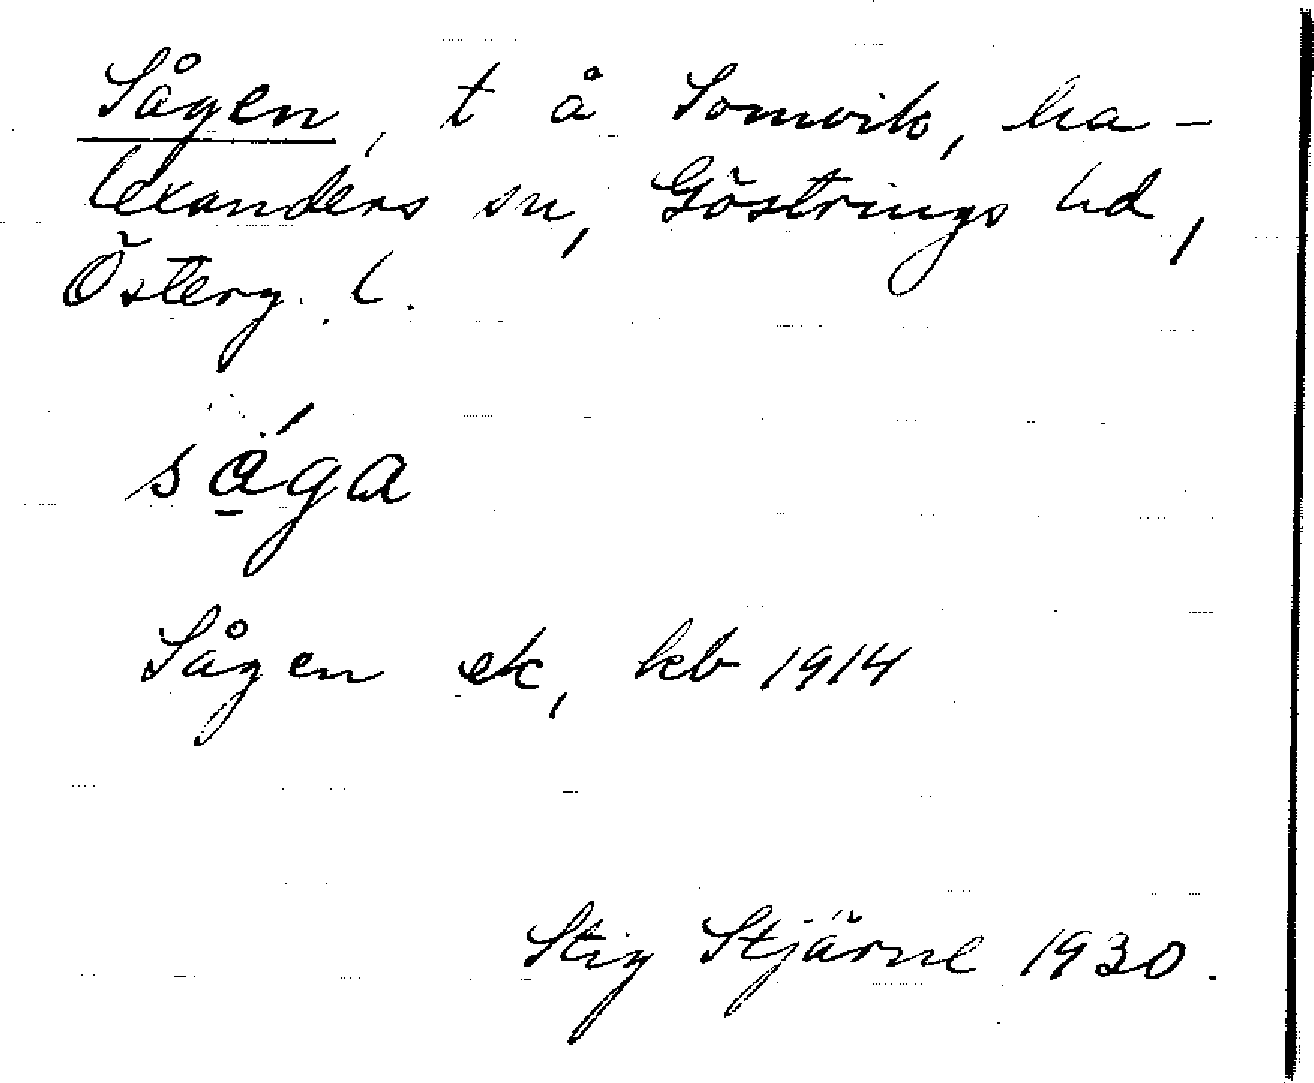 Sågen, t å Somvik, ha-
lexanders sn, Göstrings hd,
Österg. l.
såga
Sågen ek, kb 1914
Stig Stjärne 1930.